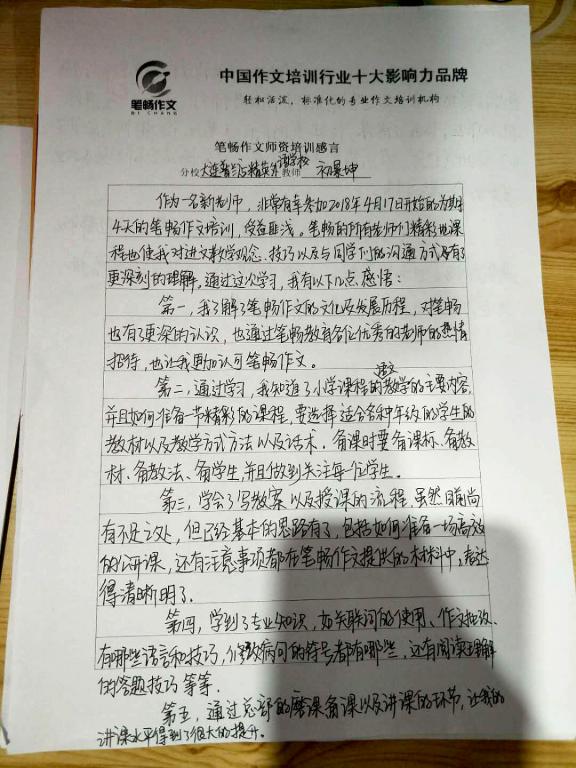 笔畅作文
BI CHANG
中国作文培训行业十大影响力品牌
轻松活泼,标准化的专业作文培训机构
笔畅作文师资培训感言
分校 大连 精英 学校 教师 初景坤
作为一名新老师,非常有幸参加2018年4月17日开始的为期
4天的笔畅作文培训,受益匪浅。笔畅的所有老师们精彩的课
程也使我对语文教学观念、技巧以及与同学们的沟通方式有了
更深刻的理解,通过这次学习,我有以下几点感悟:
第一,我了解了笔畅作文的文化及发展历程,对笔畅
也有了更深的认识,也通过笔畅教育各位优秀的老师的热情
招待,也让我更加认可笔畅作文。
第二,通过学习,我知道了小学课程的语文教学的主要内容,
并且如何准备一节精彩的课程,要选择适合各种年级的学生的
教材以及教学方式方法以及话术。备课时要备课标、备教
材、备教法、备学生,并且做到关注每一位学生。
第三,学会了写教案以及授课的流程,虽然目前尚
有不足之处,但已经基本的思路有了,包括如何准备一场高效
的公开课,还有注意事项都在笔畅作文提供的材料中,表达
得清晰明了。
第四,学到了专业知识,如关联词的使用、作文批改、
有哪些语言和技巧,修改病句的符号都有哪些,还有阅读理解
的答题技巧等等。
第五,通过总部的磨课备课以及讲课的环节,让我的
讲课水平得到了很大的提升。